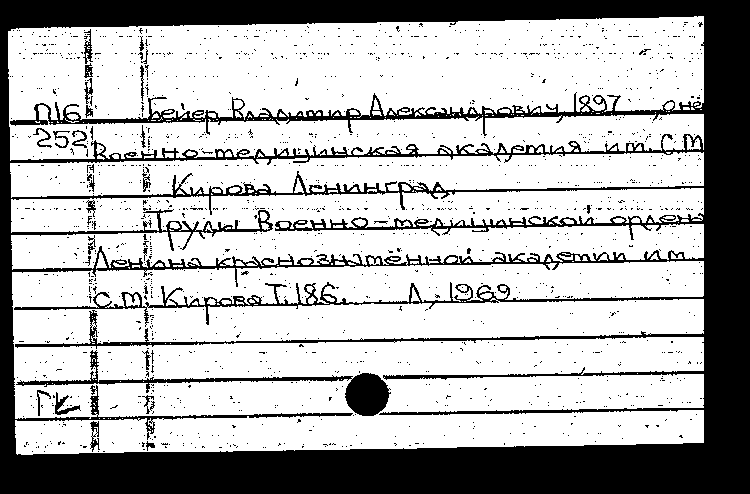 П16 Бейер, Владимир Александрович, 1897 , о нём
252 Военно-медицинская академия им. С.М.
Кирова. Ленинград.
Труды Военно-медицинской ордена
Ленина краснознамённой академии им.
С.М. Кирова Т.186. Л., 1969
ГК